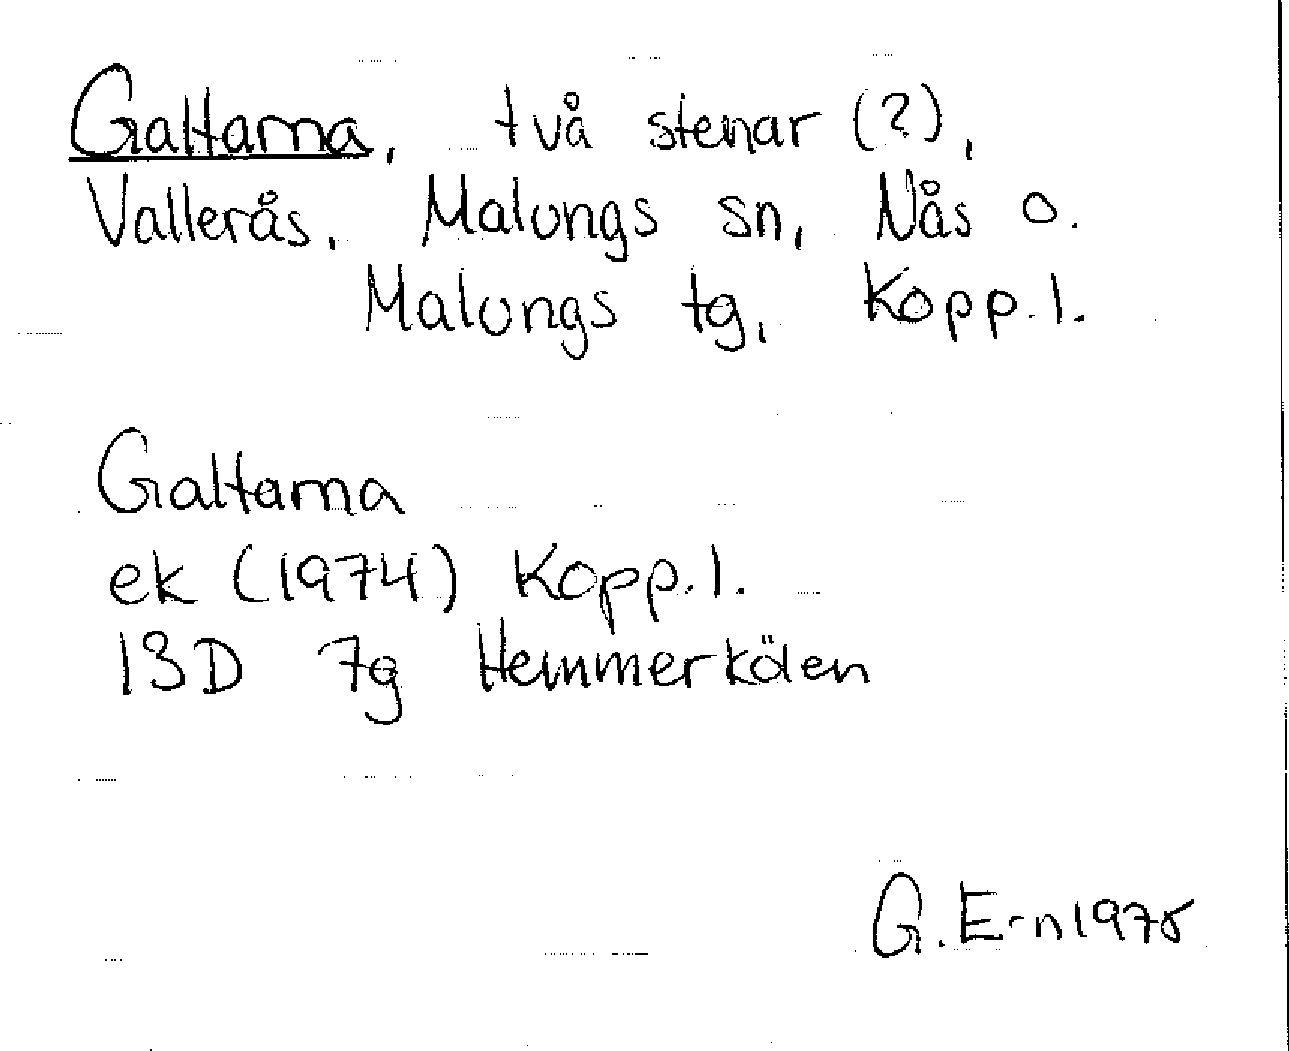 Galtarna, två stenar (?),
Vallerås, Malungs sn, Nås o.
Malungs tg, Kopp. l.
Galtarna
ek (1974) Kopp. l.
13D 7g Hemmerkölen
G. E-n 1975